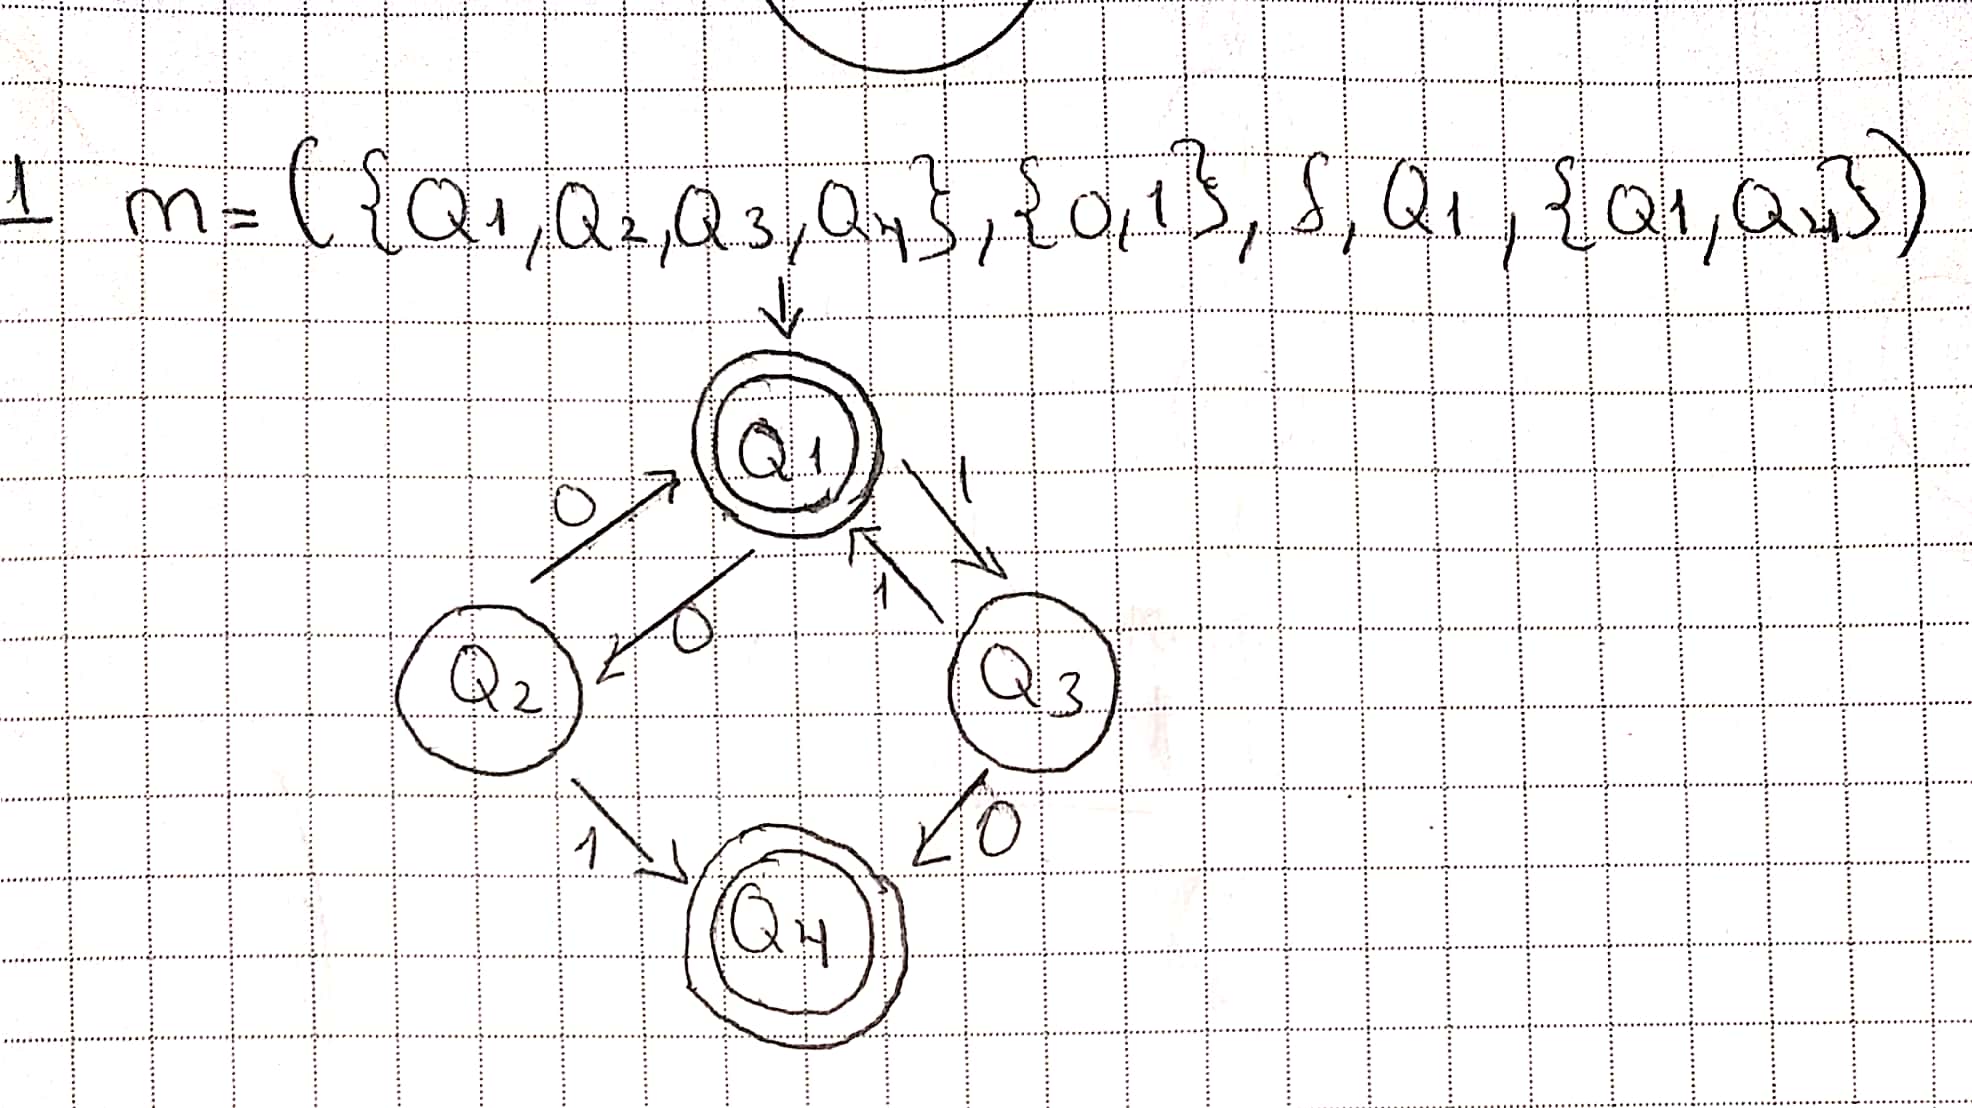 1 m=({Q1,Q2,Q3,Q4},{0,1},δ,Q1,{Q1,Q4})
Q1
0 1
0 1
Q2 Q3
1 0
Q4